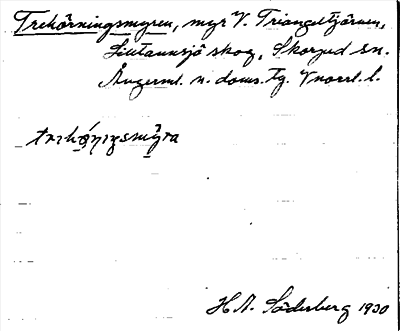 Trehörningsmyren, myr V. Triangeltjärnen,
Lidtannsjö skog, Skorped sn.
Ångerml. n. doms. tg. Vnorrl. l.
H A. Söderberg 1930